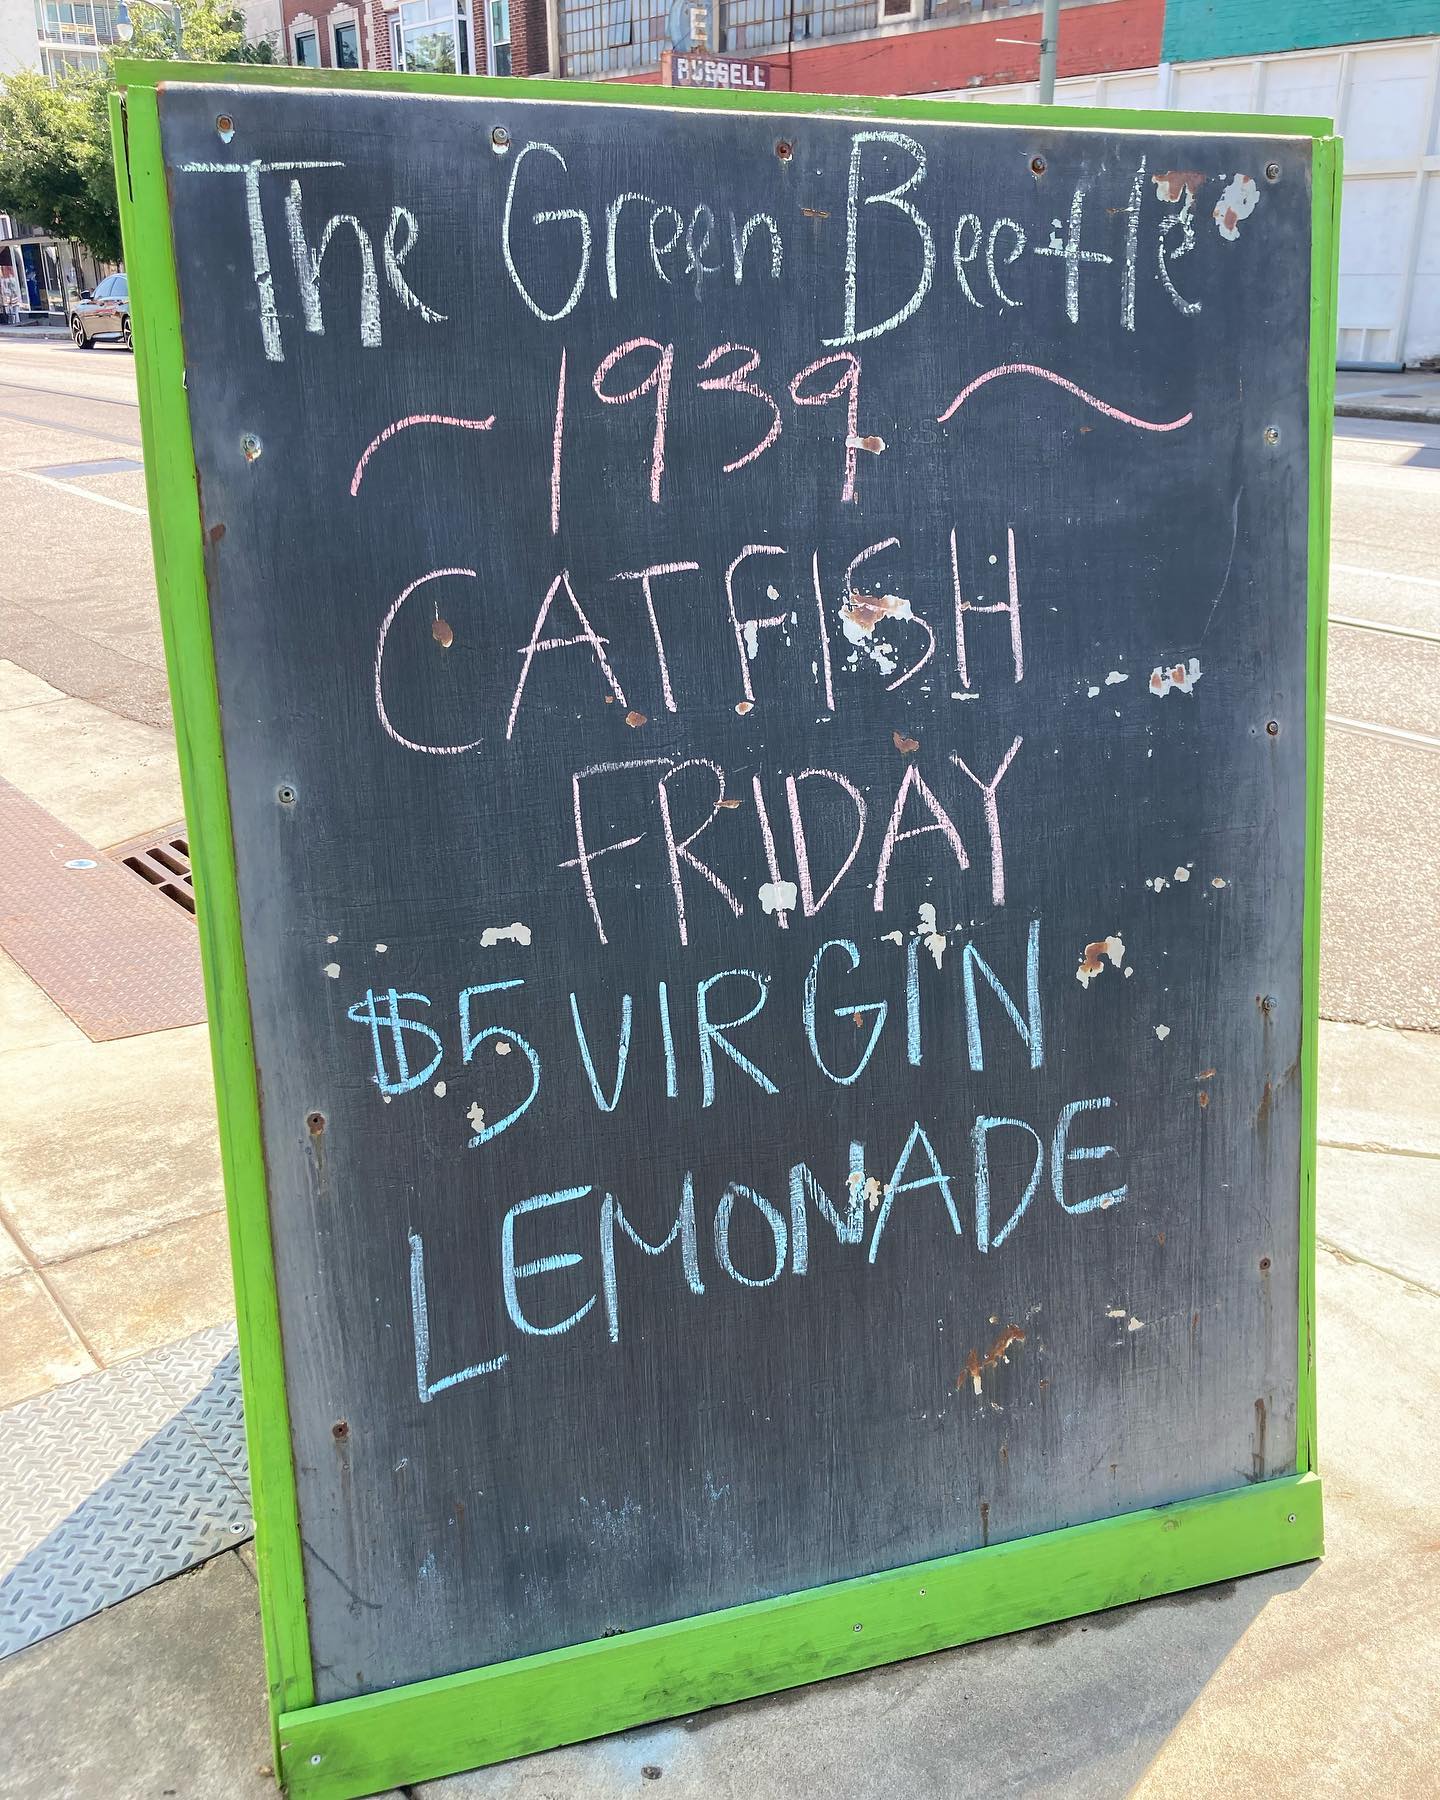 E
RUSSELL
The Green Beetle
~ 1939 ~
CATFISH
FRIDAY
$5 VIRGIN
LEMONADE